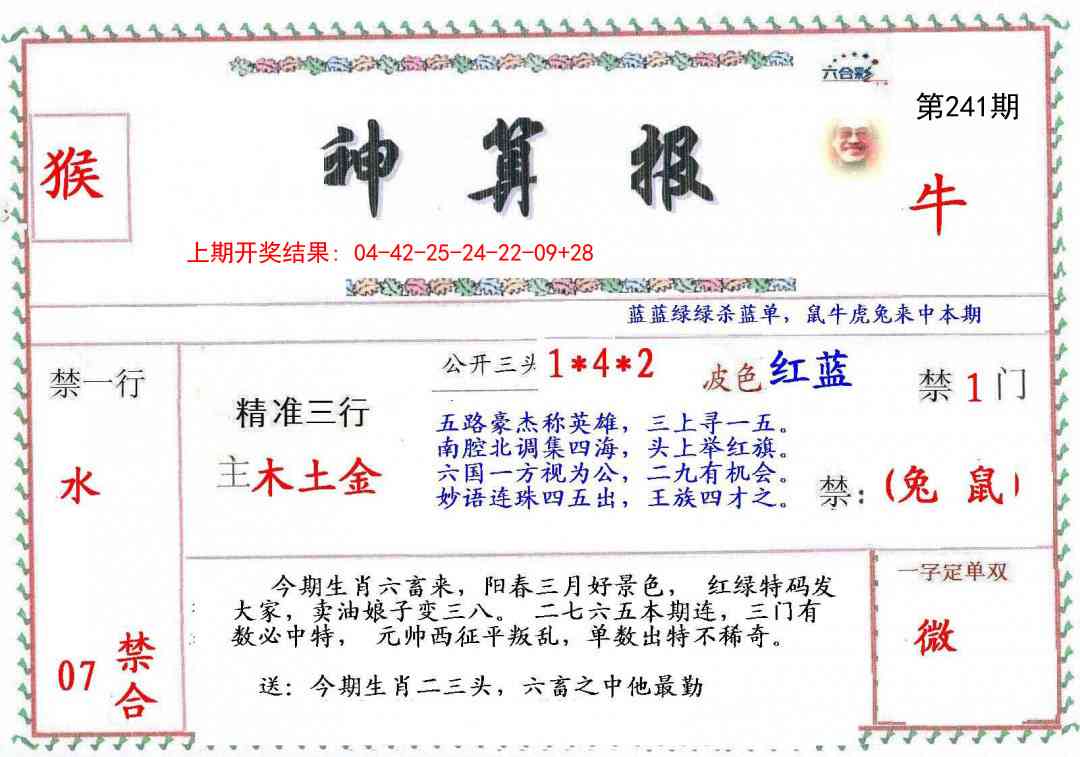 六合彩
第241期
猴
神算报
牛
上期开奖结果：04-42-25-24-22-09+28
蓝蓝绿绿杀蓝单，鼠牛虎兔来中本期
禁一行
水
07
禁合
精准三行
主木土金
公开三头 1*4*2
波色 红蓝
禁1门
五路豪杰称英雄，三上寻一五。
南腔北调集四海，头上举红旗。
六国一方视为公，二九有机会。
妙语连珠四五出，王族四才之。
禁：(兔 鼠)
今期生肖六畜来，阳春三月好景色， 红绿特码发
大家，卖油娘子变三八。 二七六五本期连，三门有
数必中特， 元帅西征平叛乱，单数出特不稀奇。
送：今期生肖二三头，六畜之中他最勤
一字定单双
微